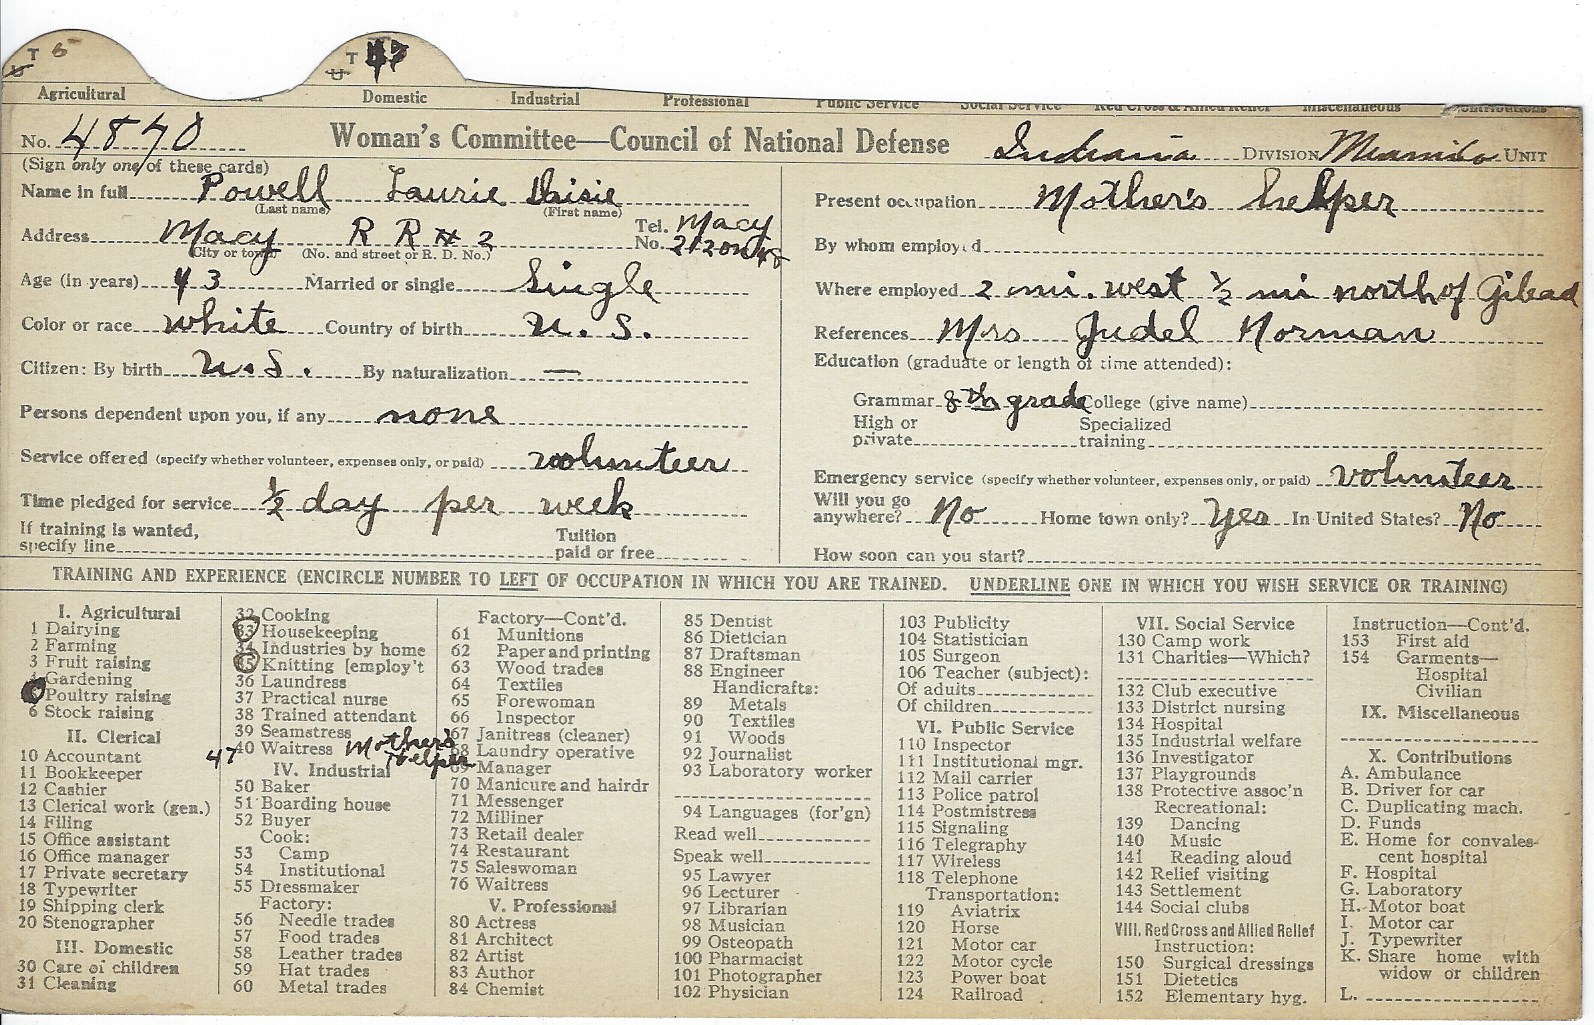 T 6
U
T 47
U
Agricultural Domestic Industrial Professional Public Service Social Service Red Cross & Allied Relief Miscellaneous Contributions
No. 4870 Woman's Committee—Council of National Defense Indiana DIVISION UNIT
(Sign only one of these cards)
Name in full Powell Laurie Daisie
(Last name) (First name)
Address Macy R R # 2 Tel. No. Macy 212 on 48
(City or town) (No. and street or R. D. No.)
Age (in years) 43 Married or single Single
Color or race White Country of birth U. S.
Citizen: By birth U.S. By naturalization —
Persons dependent upon you, if any none
Service offered (specify whether volunteer, expenses only, or paid) volunteer
Time pledged for service ½ day per week
If training is wanted, specify line Tuition paid or free
Present occupation Mother's helper
By whom employed
Where employed 2 mi. west ½ mi north of Gilead
References Mrs Judel Norman
Education (graduate or length of time attended):
Grammar 8th grade College (give name)
High or private Specialized training
Emergency service (specify whether volunteer, expenses only, or paid) volunteer
Will you go anywhere? No Home town only? Yes In United States? No
How soon can you start?
TRAINING AND EXPERIENCE (ENCIRCLE NUMBER TO LEFT OF OCCUPATION IN WHICH YOU ARE TRAINED. UNDERLINE ONE IN WHICH YOU WISH SERVICE OR TRAINING)
I. Agricultural
1 Dairying
2 Farming
3 Fruit raising
4 Gardening
Poultry raising
6 Stock raising
II. Clerical
10 Accountant
11 Bookkeeper
12 Cashier
13 Clerical work (gen.)
14 Filing
15 Office assistant
16 Office manager
17 Private secretary
18 Typewriter
19 Shipping clerk
20 Stenographer
III. Domestic
30 Care of children
31 Cleaning
32 Cooking
33 Housekeeping
34 Industries by home
35 Knitting [employ't
36 Laundress
37 Practical nurse
38 Trained attendant
39 Seamstress
40 Waitress
47 Mother's Helper
IV. Industrial
50 Baker
51 Boarding house
52 Buyer
Cook:
53 Camp
54 Institutional
55 Dressmaker
Factory:
56 Needle trades
57 Food trades
58 Leather trades
59 Hat trades
60 Metal trades
Factory—Cont'd.
61 Munitions
62 Paper and printing
63 Wood trades
64 Textiles
65 Forewoman
66 Inspector
67 Janitress (cleaner)
68 Laundry operative
69 Manager
70 Manicure and hairdr
71 Messenger
72 Milliner
73 Retail dealer
74 Restaurant
75 Saleswoman
76 Waitress
V. Professional
80 Actress
81 Architect
82 Artist
83 Author
84 Chemist
85 Dentist
86 Dietician
87 Draftsman
88 Engineer
Handicrafts:
89 Metals
90 Textiles
91 Woods
92 Journalist
93 Laboratory worker
94 Languages (for'gn)
Read well
Speak well
95 Lawyer
96 Lecturer
97 Librarian
98 Musician
99 Osteopath
100 Pharmacist
101 Photographer
102 Physician
103 Publicity
104 Statistician
105 Surgeon
106 Teacher (subject):
Of adults
Of children
VI. Public Service
110 Inspector
111 Institutional mgr.
112 Mail carrier
113 Police patrol
114 Postmistress
115 Signaling
116 Telegraphy
117 Wireless
118 Telephone
Transportation:
119 Aviatrix
120 Horse
121 Motor car
122 Motor cycle
123 Power boat
124 Railroad
VII. Social Service
130 Camp work
131 Charities—Which?
132 Club executive
133 District nursing
134 Hospital
135 Industrial welfare
136 Investigator
137 Playgrounds
138 Protective assoc'n
Recreational:
139 Dancing
140 Music
141 Reading aloud
142 Relief visiting
143 Settlement
144 Social clubs
VIII. Red Cross and Allied Relief
Instruction:
150 Surgical dressings
151 Dietetics
152 Elementary hyg.
Instruction—Cont'd.
153 First aid
154 Garments—
Hospital
Civilian
IX. Miscellaneous
X. Contributions
A. Ambulance
B. Driver for car
C. Duplicating mach.
D. Funds
E. Home for convales-
cent hospital
F. Hospital
G. Laboratory
H. Motor boat
I. Motor car
J. Typewriter
K. Share home with
widow or children
L.